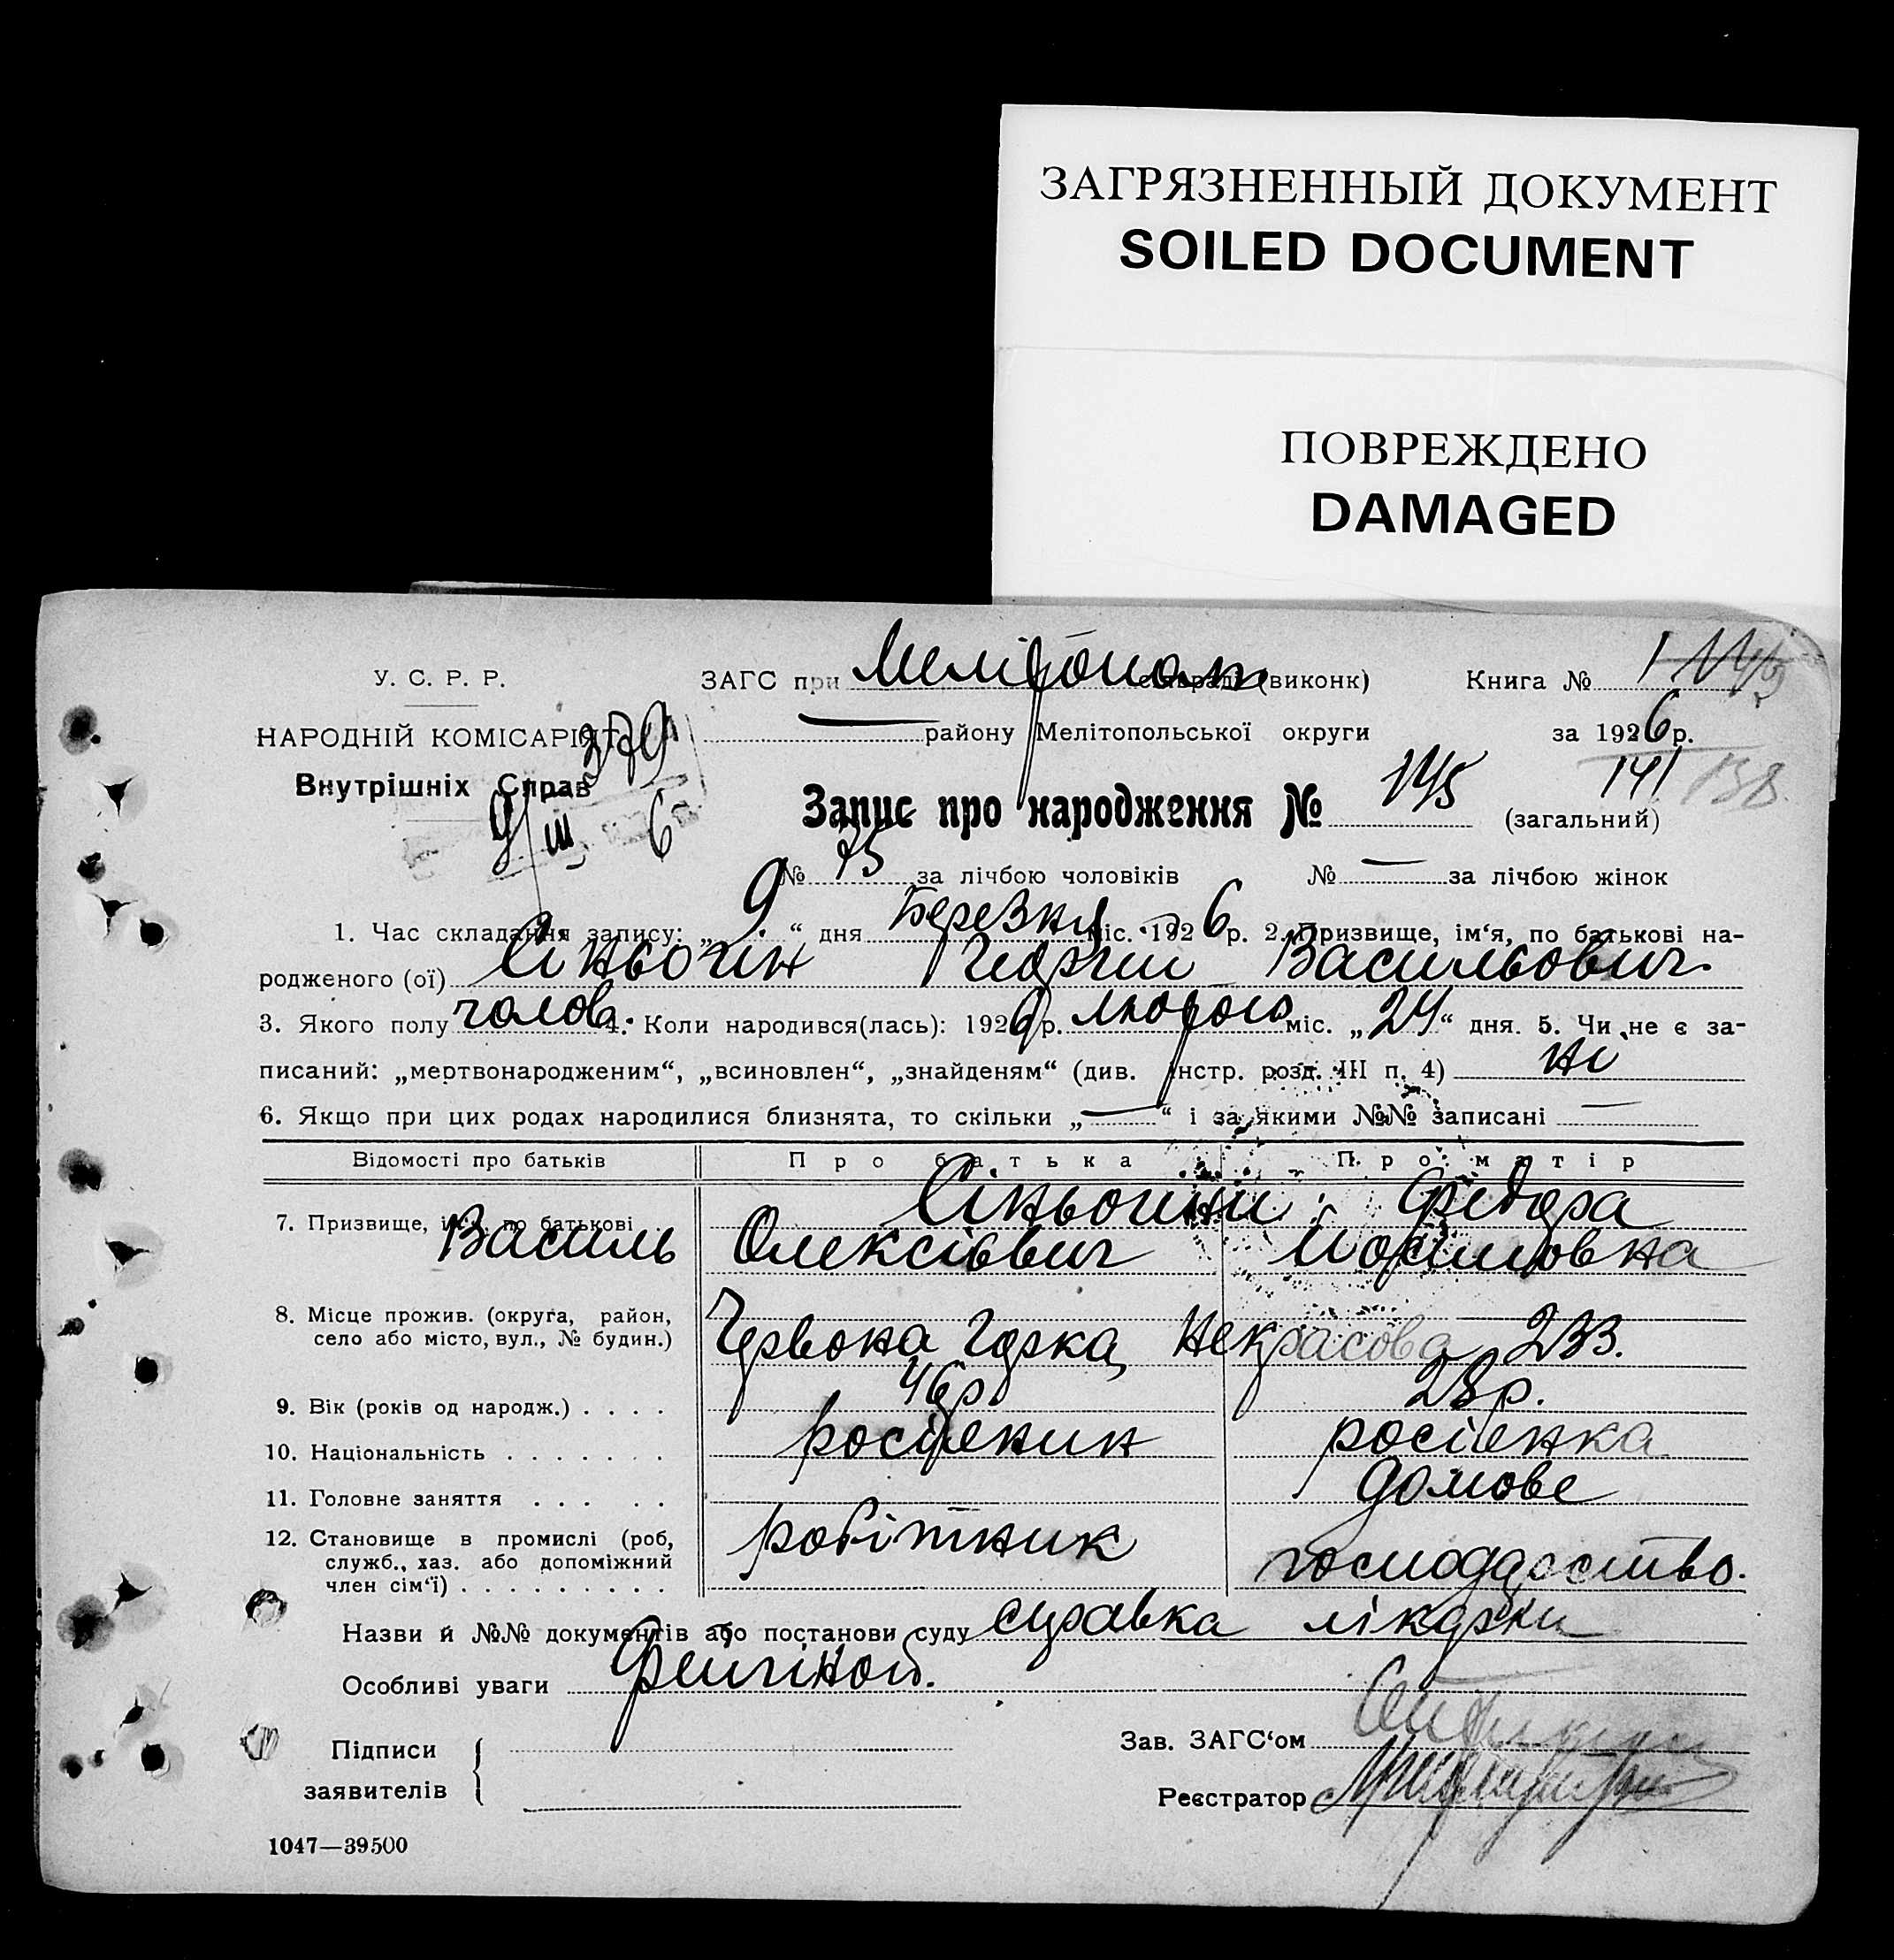 ЗАГРЯЗНЕННЫЙ ДОКУМЕНТ
SOILED DOCUMENT
ПОВРЕЖДЕНО
DAMAGED
У. С. Р. Р.
ЗАГС при (виконк)
Книга №
НАРОДНІЙ КОМІСАРІЯТ
району Мелітопольської округи
за 1926 р.
Внутрішніх Справ
379
9/III 6
141 138
Запис про народження № 145 (загальний)
№ 75 за лічбою чоловіків № — за лічбою жінок
1. Час складання запису: „9“ дня Березня міс. 1926 р. 2. Призвище, ім‘я, по батькові на-
родженого (ої) Сіньогін Георгій Васильович.
3. Якого полу чолов. 4. Коли народився(лась): 1926 р. лютого міс. „24“ дня. 5. Чи не є за-
писаний: „мертвонародженим“, „всиновлен“, „знайденям“ (див. Інстр. розд. III п. 4) ні
6. Якщо при цих родах народилися близнята, то скільки „—“ і за якими №№ записані —
Відомості про батьків Про батька Про матір
Сіньогіни: Федора
7. Призвище, ім‘я, по батькові
Василь Олексієвич
8. Місце прожив. (округа, район,
село або місто, вул., № будин.) Червона Горка, Некрасова 233.
9. Вік (років од народж.) . . . . 46 р. 28 р.
10. Національність . . . . . . . росіянин росіянка
11. Головне заняття . . . . . домове
12. Становище в промислі (роб, робітник
служб., хаз. або допоміжний господарство.
член сім‘ї) . . . . . . . . .
Назви й №№ документів або постанови суду справка лікарки
Особливі уваги
Підписи
заявителів
Зав. ЗАГС‘ом
Реєстратор
1047—39500